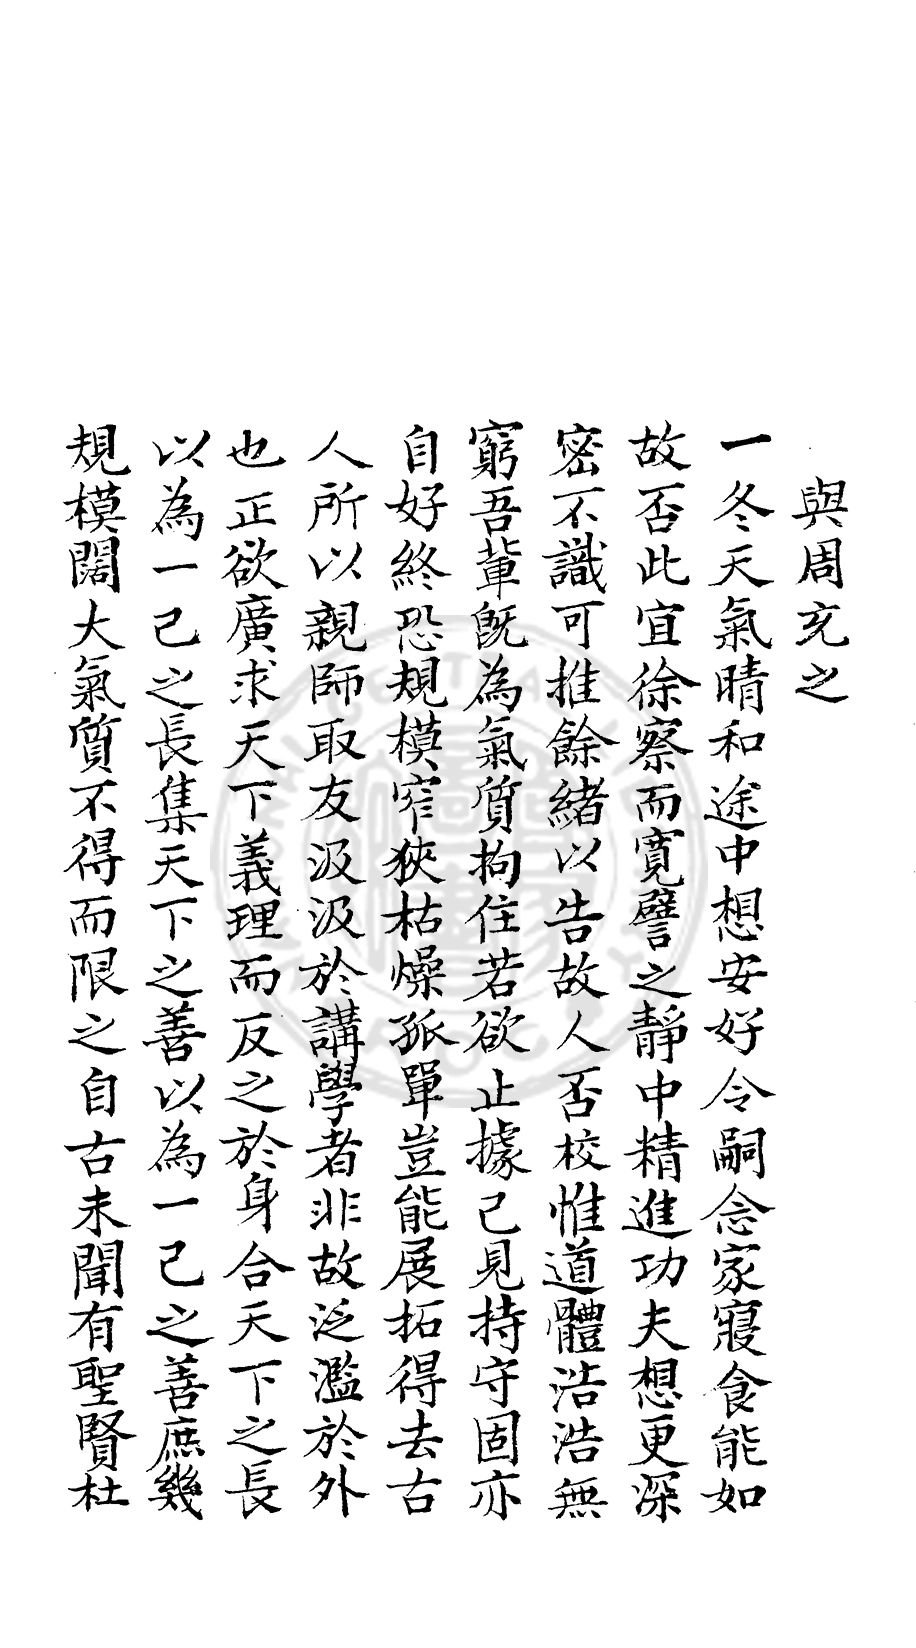 與周充之
一冬天氣晴和途中想安好令嗣念家寢食能如
故否此宜徐察而寬譬之靜中精進功夫想更深
密不識可推餘緒以告故人否校惟道體浩浩無
窮吾輩旣為氣質拘住若欲止據己見持守固亦
自好終恐規模窄狹枯燥孤單豈能展拓得去古
人所以親師取友汲汲於講學者非故泛濫於外
也正欲廣求天下義理而反之於身合天下之長
以為一己之長集天下之善以為一己之善庶幾
規模闊大氣質不得而限之自古未聞有聖賢杜